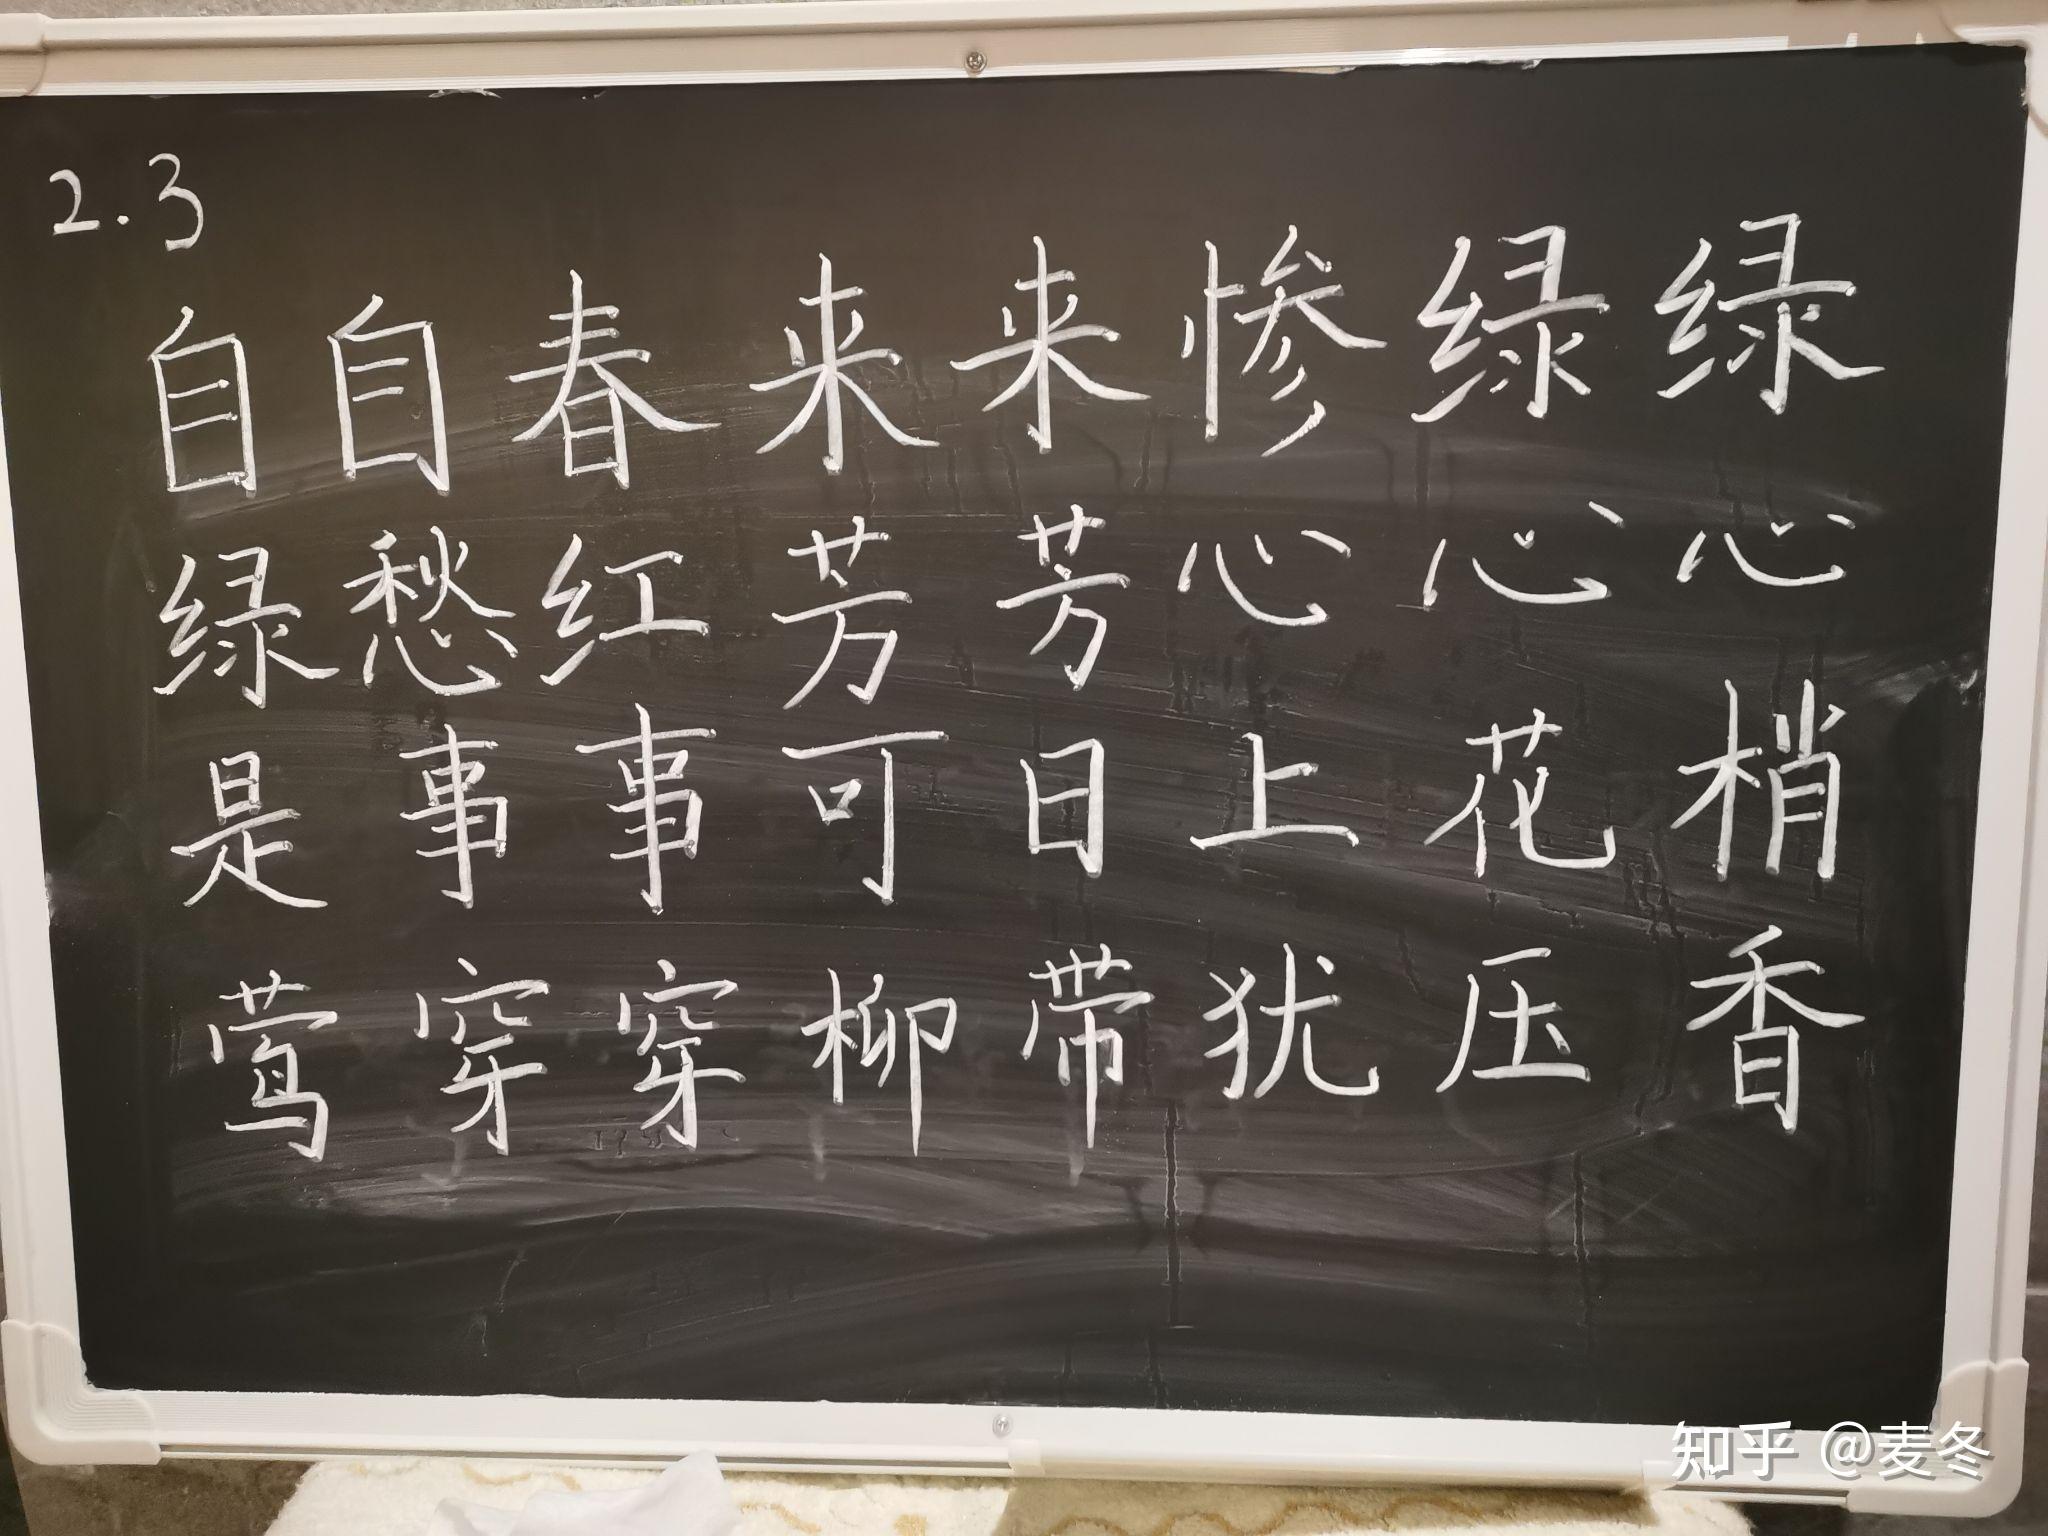 2.3
自自春来来惨绿绿
绿愁红芳芳心心心
是事事可日上花梢
莺穿穿柳带犹压香
知乎 @麦冬